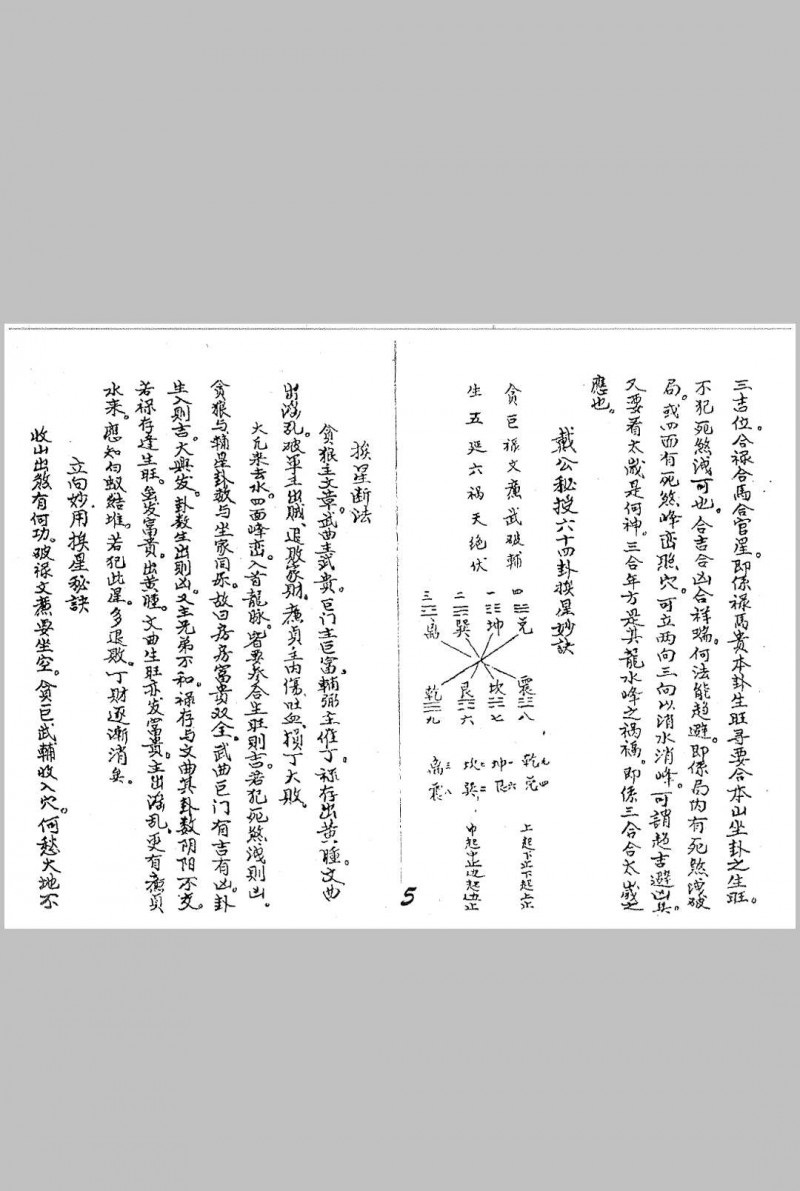 三吉位合禄合馬合官星。即係禄馬贵本卦生旺尋要合本山坐卦之生旺。
不犯死煞洩可也。合吉合凶合祥瑞。何法能趋避。即係局内有死煞洩破
局。或四面有死煞峰峦照穴。可立两向三向以消水消峰。可謂趋吉避凶矣。
又要看太歲是何神。三合年方是其龍水峰之禍福。即係三合合太歲之
應也。
戴公秘授六十四卦挨星妙訣
貪巨禄文廉武破輔
生五延六祸天绝伏
四 兑
一 坤
二 巽
三 离
震 八
坎 七
艮 六
乾 九
乾九 兑四
坤一 艮六
坎 巽二
离三 震八
上起下止下起上止
中起中止边起边止
5
挨星断法
貪狼主文章。武曲主武贵。巨门主巨富。輔弼主催丁。禄存出黄腫。文曲
出淫乱。破軍主出贼、退败家财。廉貞主内傷、吐血、损丁大败。
大凡来去水。四面峰峦。入首龍脉。皆要参合生旺則吉。若犯死煞洩則凶。
貪狼与輔星卦数与坐家同乐。故曰房房富贵双全。武曲巨门有吉有凶。卦
生入則吉。大興发。卦数生出則凶。又主兄弟不和。禄存与文曲其卦数阴阳不交。
若禄存逢生旺。虽发富贵。出黄腫。文曲生旺亦发富贵。主出淫乱。更有廉貞
水来。應知白蚁結堆。若犯此星。多退败。丁财逐漸消矣。
立向妙用挨星秘訣
收山出煞有何功。破禄文廉要坐空。貪巨武輔收入穴。何愁大地不